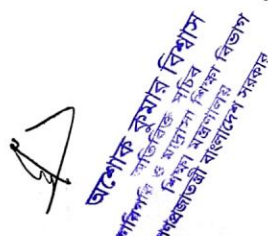 অশোক কুমার বিশ্বাস
অতিরিক্ত সচিব
কারিগরি ও মাদ্রাসা শিক্ষা বিভাগ
শিক্ষা মন্ত্রণালয়
গণপ্রজাতন্ত্রী বাংলাদেশ সরকার